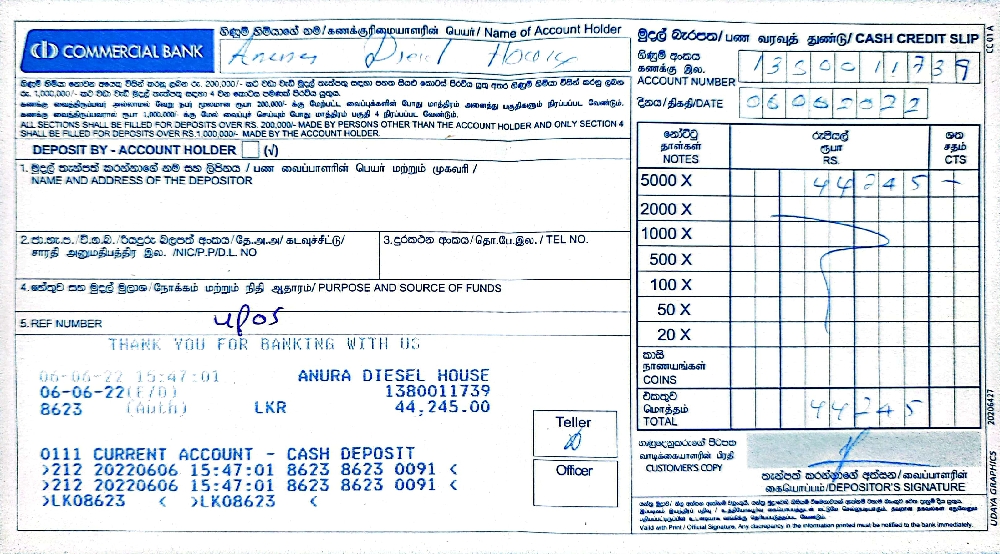 COMMERCIAL BANK
ගිණුම් හිමියාගේ නම/கணக்குரிமையாளரின் பெயர்/ Name of Account Holder
Anura Diesel House
ALL SECTIONS SHALL BE FILLED FOR DEPOSITS OVER RS. 200,000/- MADE BY PERSONS OTHER THAN THE ACCOUNT HOLDER AND ONLY SECTION 4
SHALL BE FILLED FOR DEPOSITS OVER RS.1,000,000/- MADE BY THE ACCOUNT HOLDER.
DEPOSIT BY - ACCOUNT HOLDER (√)
1. මුදල් තැන්පත් කරන්නාගේ නම සහ ලිපිනය / பண வைப்பாளரின் பெயர் மற்றும் முகவரி /
NAME AND ADDRESS OF THE DEPOSITOR
2. ජා.හැ.ප./වි.ග.බ./රියදුරු බලපත් අංකය/தே.அ.அ/ கடவுச்சீட்டு/
சாரதி அனுமதிபத்திர இல. /NIC/P.P/D.L. NO
3. දුරකථන අංකය/தொ.பே.இல. / TEL NO.
4. හේතුව සහ මුදල් මූලාශ්‍ර/நோக்கம் மற்றும் நிதி ஆதாரம்/ PURPOSE AND SOURCE OF FUNDS
5. REF NUMBER
THANK YOU FOR BANKING WITH US
06-06-22 15:47:01 ANURA DIESEL HOUSE
06-06-22(E/D) 1380011739
8623 (Auth) LKR 44,245.00
0111 CURRENT ACCOUNT - CASH DEPOSIT
>212 20220606 15:47:01 8623 8623 0091 <
>212 20220606 15:47:01 8623 8623 0091 <
>LK08623 < >LK08623 <
Teller
Officer
මුදල් බැරපත/ பண வரவுத் துண்டு/ CASH CREDIT SLIP
ගිණුම් අංකය
கணக்கு இல.
ACCOUNT NUMBER
1380011739
දිනය/திகதி/DATE
06062022
නෝට්ටු
தாள்கள்
NOTES
රුපියල්
ரூபா
RS.
ශත
சதம்
CTS
5000 X 44245 -
2000 X
1000 X
500 X
100 X
50 X
20 X
කාසි
நாணயங்கள்
COINS
එකතුව
மொத்தம்
TOTAL
44245
ගනුදෙනුකරුගේ පිටපත
வாடிக்கையாளரின் பிரதி
CUSTOMER'S COPY
තැන්පත් කරන්නාගේ අත්සන/வைப்பாளரின்
கையொப்பம்/DEPOSITOR'S SIGNATURE
Valid with Print / Official Signature. Any discrepancy in the information printed must be notified to the bank immediately.
CC 01 A
20206427
UDAYA GRAPHICS